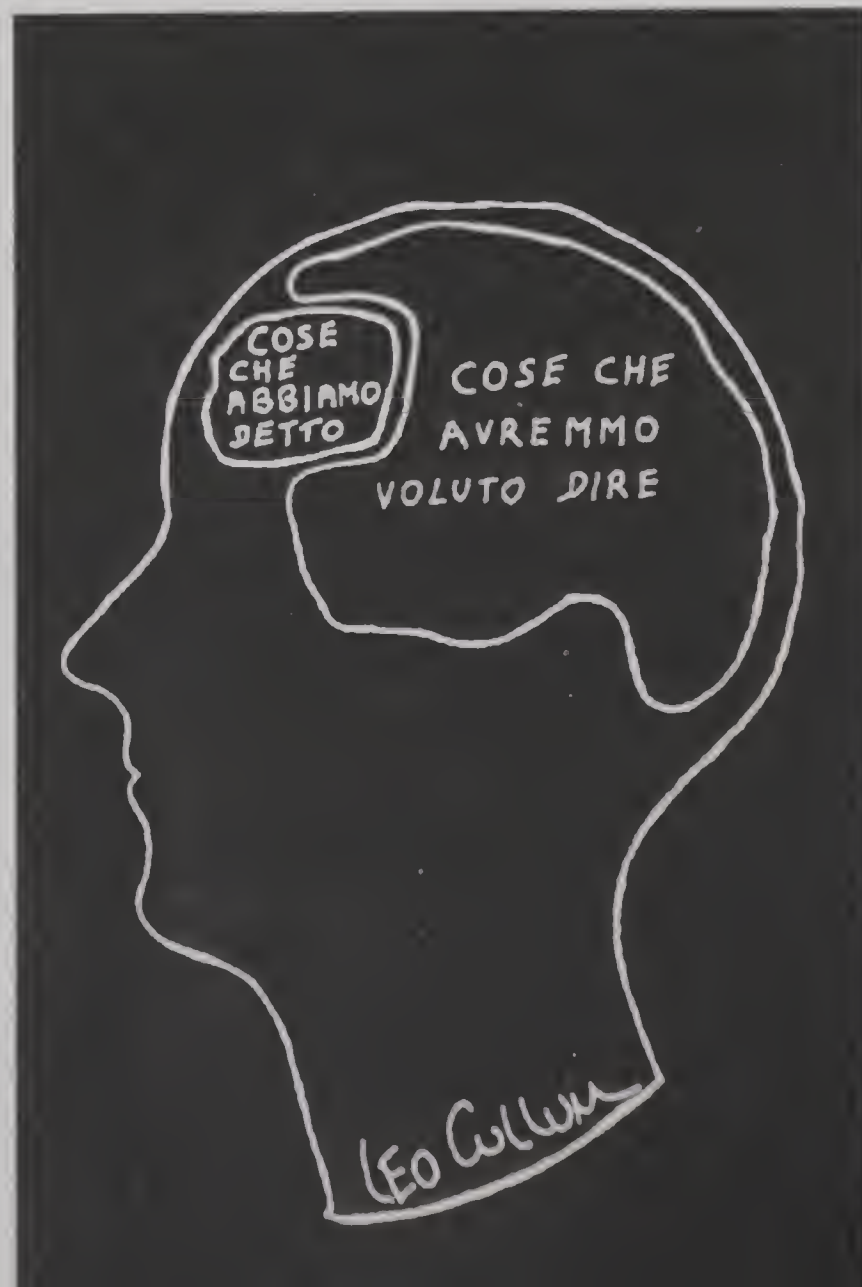 COSE
CHE
ABBIAMO
DETTO
COSE CHE
AVREMMO
VOLUTO DIRE
LEO CULLUM